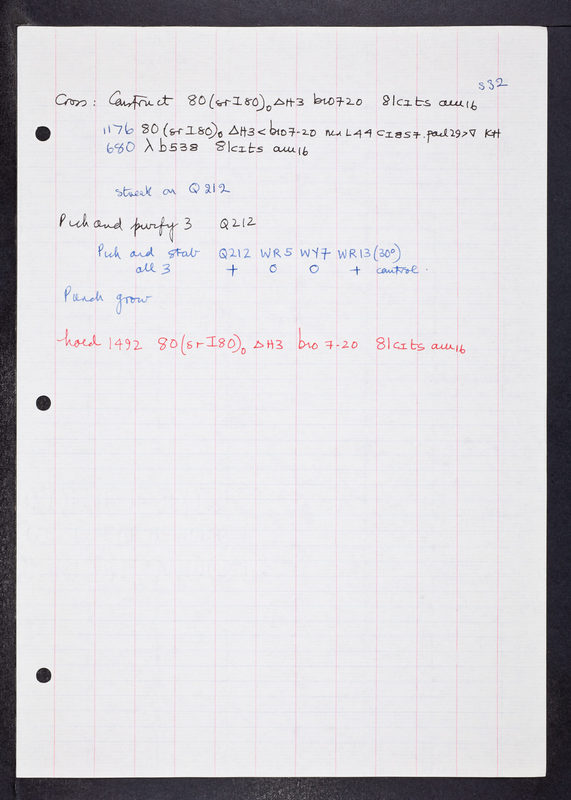 532
Cross: Construct 80(srI80)₀ ΔH3 bio720 81cIts am16
1176 80(srI80)₀ ΔH3<bio7-20 nin L44 cI857.pal29>∇ KH
680 λb538 81cIts am16
streak on Q212
Pick and purify 3 Q212
Pick and stab Q212 WR5 WY7 WR13(30°)
all 3 + 0 0 + control.
Pick grow
hoed 1492 80(srI80)₀ ΔH3 bio 7-20 81cIts am16